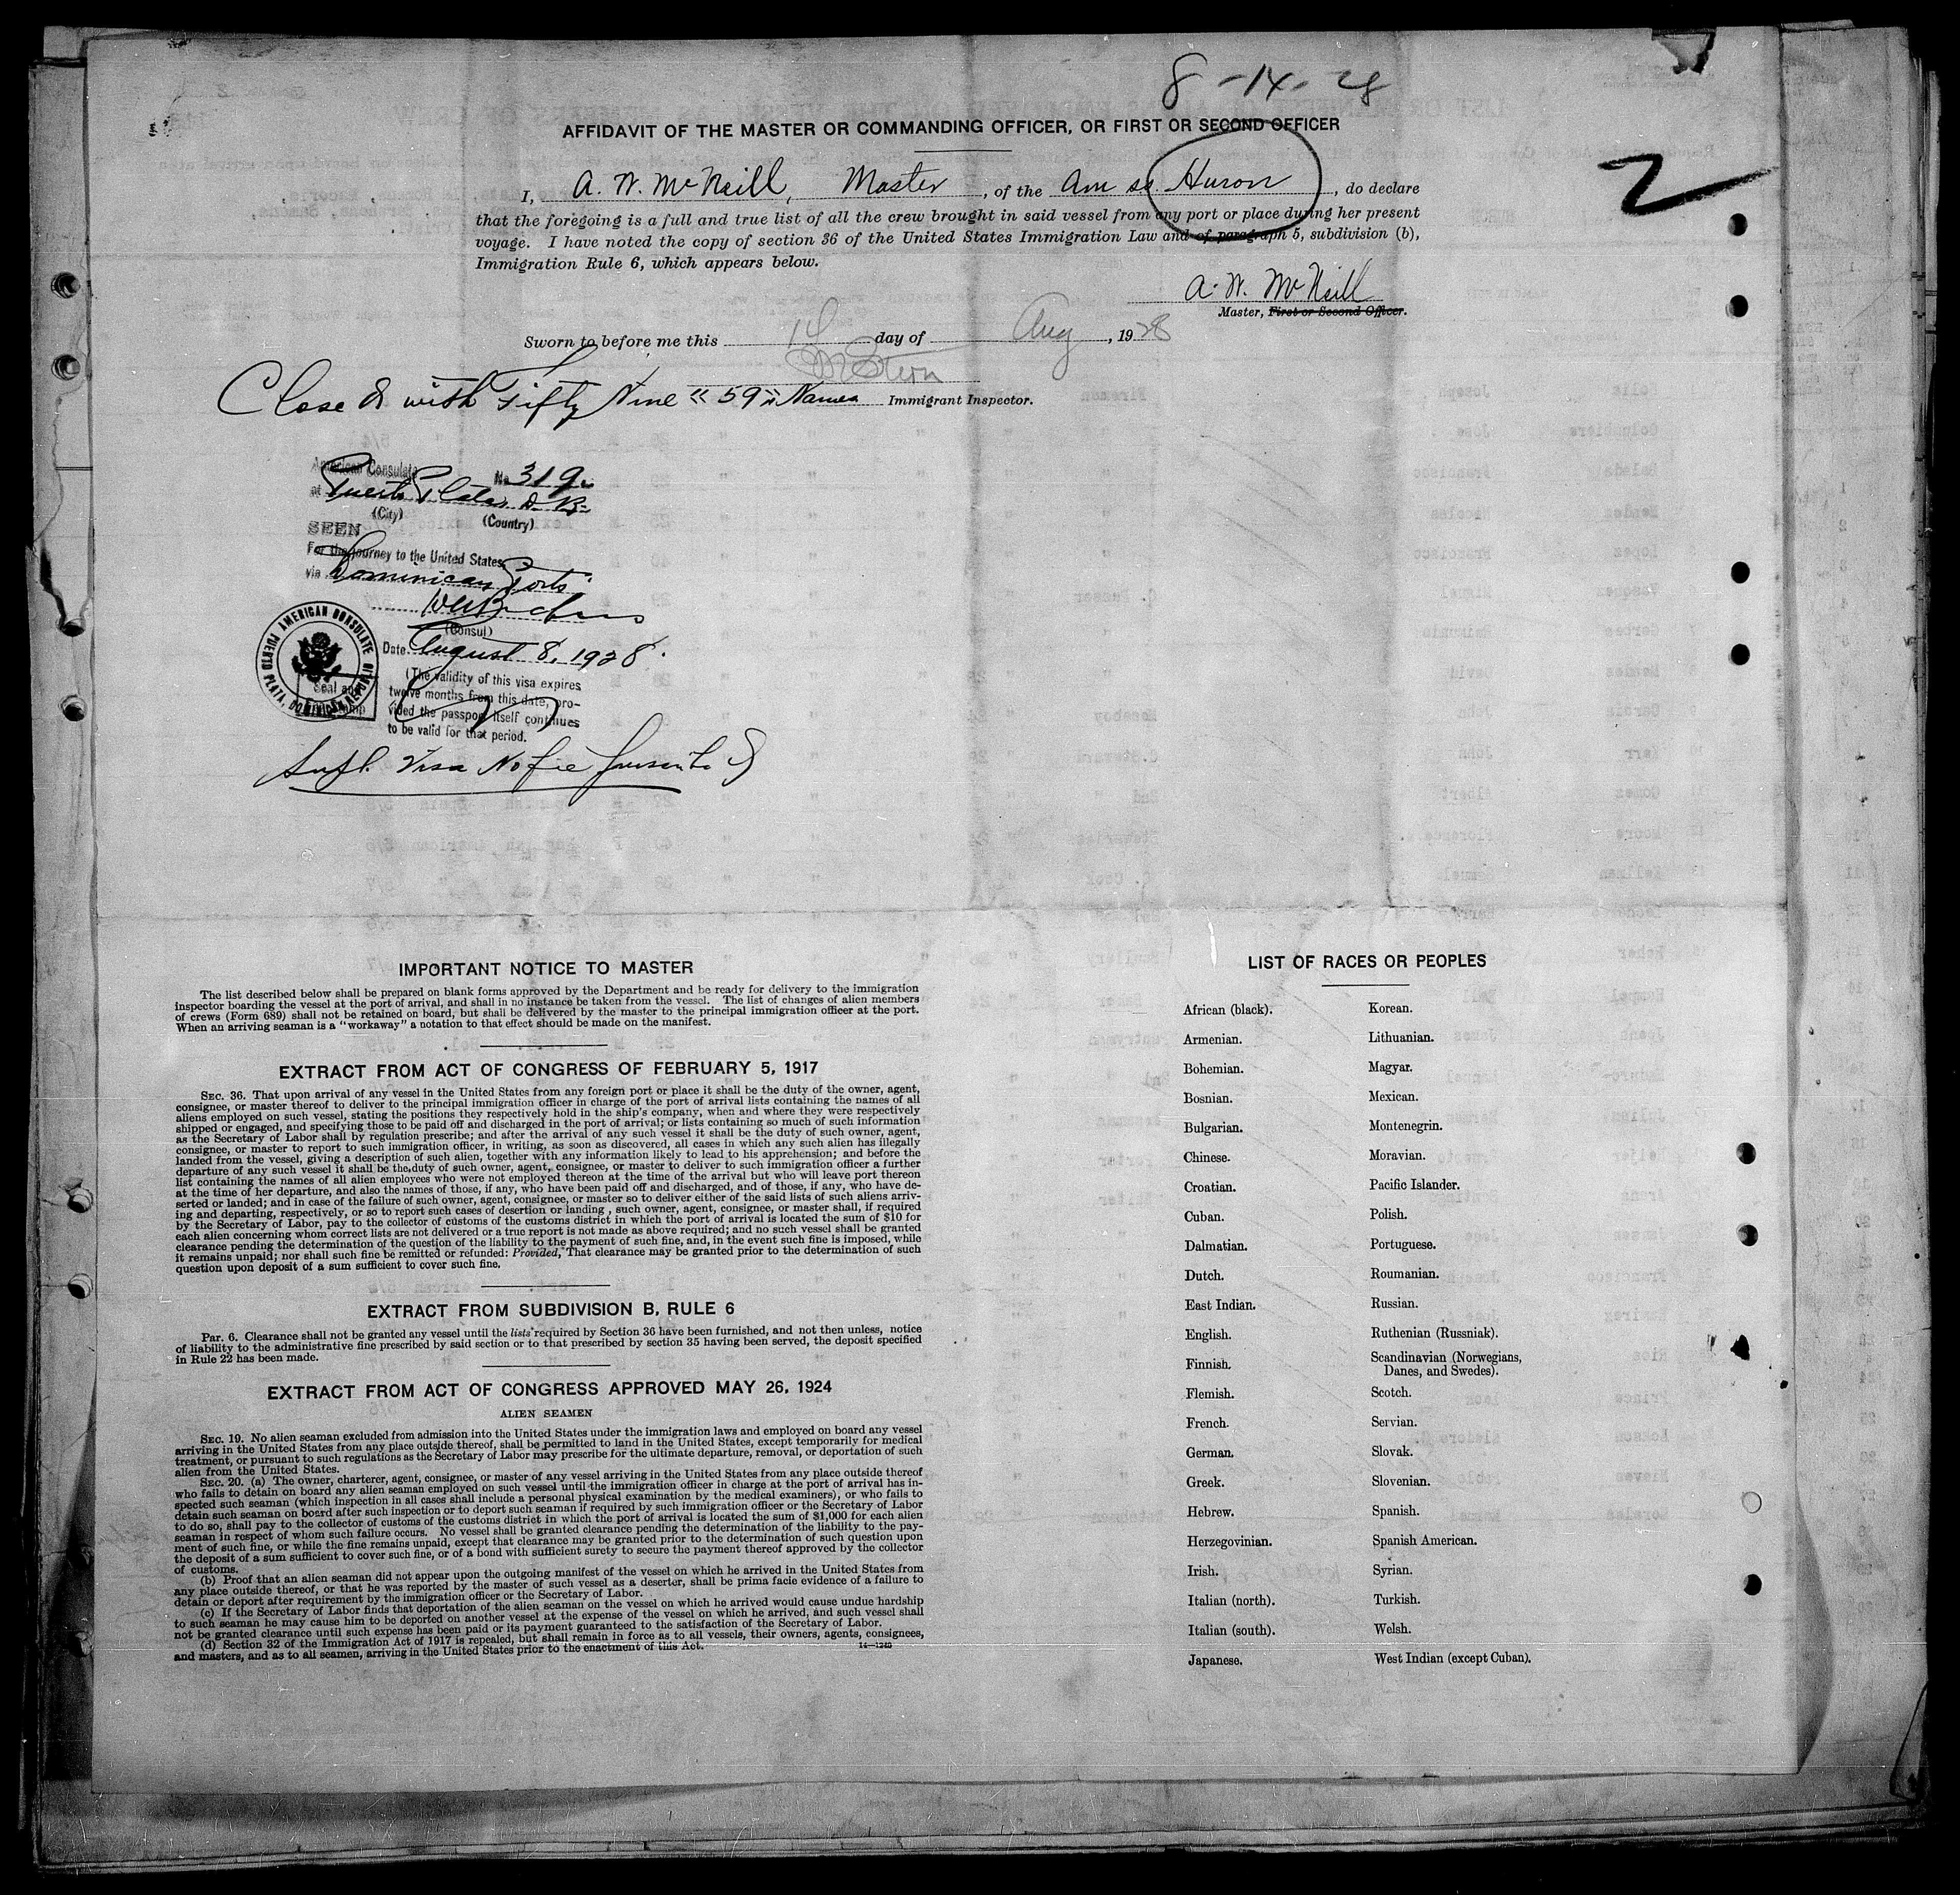 8-14-28
AFFIDAVIT OF THE MASTER OR COMMANDING OFFICER, OR FIRST OR SECOND OFFICER
I, A. W. McNeill, Master, of the Am ss. Huron, do declare
that the foregoing is a full and true list of all the crew brought in said vessel from any port or place during her present
voyage. I have noted the copy of section 36 of the United States Immigration Law and of paragraph 5, subdivision (b),
Immigration Rule 6, which appears below.
2
A. W. McNeill
Master, First or Second Officer.
Sworn to before me this 14 day of Aug, 1928
Immigrant Inspector.
Close d with Fifty Nine "59" Names
American Consulate No. 319.
at Puerto Plata, D. R.
(City) (Country)
SEEN
For the journey to the United States
via Dominican Ports
(Consul)
Date August 8, 1928.
(The validity of this visa expires
twelve months from this date, pro-
vided the passport itself continues
to be valid for that period.
AMERICAN CONSULATE
PUERTO PLATA, DOMINICAN REPUBLIC
Supl. Visa No fee
IMPORTANT NOTICE TO MASTER
The list described below shall be prepared on blank forms approved by the Department and be ready for delivery to the immigration
inspector boarding the vessel at the port of arrival, and shall in no instance be taken from the vessel. The list of changes of alien members
of crews (Form 689) shall not be retained on board, but shall be delivered by the master to the principal immigration officer at the port.
When an arriving seaman is a "workaway" a notation to that effect should be made on the manifest.
EXTRACT FROM ACT OF CONGRESS OF FEBRUARY 5, 1917
SEC. 36. That upon arrival of any vessel in the United States from any foreign port or place it shall be the duty of the owner, agent,
consignee, or master thereof to deliver to the principal immigration officer in charge of the port of arrival lists containing the names of all
aliens employed on such vessel, stating the positions they respectively hold in the ship's company, when and where they were respectively
shipped or engaged, and specifying those to be paid off and discharged in the port of arrival; or lists containing so much of such information
as the Secretary of Labor shall by regulation prescribe; and after the arrival of any such vessel it shall be the duty of such owner, agent,
consignee, or master to report to such immigration officer, in writing, as soon as discovered, all cases in which any such alien has illegally
landed from the vessel, giving a description of such alien, together with any information likely to lead to his apprehension; and before the
departure of any such vessel it shall be the duty of such owner, agent, consignee, or master to deliver to such immigration officer a further
list containing the names of all alien employees who were not employed thereon at the time of the arrival but who will leave port thereon
at the time of her departure, and also the names of those, if any, who have been paid off and discharged, and of those, if any, who have de-
serted or landed; and in case of the failure of such owner, agent, consignee, or master so to deliver either of the said lists of such aliens arriv-
ing and departing, respectively, or so to report such cases of desertion or landing , such owner, agent, consignee, or master shall, if required
by the Secretary of Labor, pay to the collector of customs of the customs district in which the port of arrival is located the sum of $10 for
each alien concerning whom correct lists are not delivered or a true report is not made as above required; and no such vessel shall be granted
clearance pending the determination of the question of the liability to the payment of such fine, and, in the event such fine is imposed, while
it remains unpaid; nor shall such fine be remitted or refunded: Provided, That clearance may be granted prior to the determination of such
question upon deposit of a sum sufficient to cover such fine.
EXTRACT FROM SUBDIVISION B, RULE 6
Par. 6. Clearance shall not be granted any vessel until the lists required by Section 36 have been furnished, and not then unless, notice
of liability to the administrative fine prescribed by said section or to that prescribed by section 35 having been served, the deposit specified
in Rule 22 has been made.
EXTRACT FROM ACT OF CONGRESS APPROVED MAY 26, 1924
ALIEN SEAMEN
SEC. 19. No alien seaman excluded from admission into the United States under the immigration laws and employed on board any vessel
arriving in the United States from any place outside thereof, shall be permitted to land in the United States, except temporarily for medical
treatment, or pursuant to such regulations as the Secretary of Labor may prescribe for the ultimate departure, removal, or deportation of such
alien from the United States.
SEC. 20. (a) The owner, charterer, agent, consignee, or master of any vessel arriving in the United States from any place outside thereof
who fails to detain on board any alien seaman employed on such vessel until the immigration officer in charge at the port of arrival has in-
spected such seaman (which inspection in all cases shall include a personal physical examination by the medical examiners), or who fails to
detain such seaman on board after such inspection or to deport such seaman if required by such immigration officer or the Secretary of Labor
to do so, shall pay to the collector of customs of the customs district in which the port of arrival is located the sum of $1,000 for each alien
seaman in respect of whom such failure occurs. No vessel shall be granted clearance pending the determination of the liability to the pay-
ment of such fine, or while the fine remains unpaid, except that clearance may be granted prior to the determination of such question upon
the deposit of a sum sufficient to cover such fine, or of a bond with sufficient surety to secure the payment thereof approved by the collector
of customs.
(b) Proof that an alien seaman did not appear upon the outgoing manifest of the vessel on which he arrived in the United States from
any place outside thereof, or that he was reported by the master of such vessel as a deserter, shall be prima facie evidence of a failure to
detain or deport after requirement by the immigration officer or the Secretary of Labor.
(c) If the Secretary of Labor finds that deportation of the alien seaman on the vessel on which he arrived would cause undue hardship
to such seaman he may cause him to be deported on another vessel at the expense of the vessel on which he arrived, and such vessel shall
not be granted clearance until such expense has been paid or its payment guaranteed to the satisfaction of the Secretary of Labor.
(d) Section 32 of the Immigration Act of 1917 is repealed, but shall remain in force as to all vessels, their owners, agents, consignees,
and masters, and as to all seamen, arriving in the United States prior to the enactment of this Act.
14—1240
LIST OF RACES OR PEOPLES
African (black).
Armenian.
Bohemian.
Bosnian.
Bulgarian.
Chinese.
Croatian.
Cuban.
Dalmatian.
Dutch.
East Indian.
English.
Finnish.
Flemish.
French.
German.
Greek.
Hebrew.
Herzegovinian.
Irish.
Italian (north).
Italian (south).
Japanese.
Korean.
Lithuanian.
Magyar.
Mexican.
Montenegrin.
Moravian.
Pacific Islander.
Polish.
Portuguese.
Roumanian.
Russian.
Ruthenian (Russniak).
Scandinavian (Norwegians,
Danes, and Swedes).
Scotch.
Servian.
Slovak.
Slovenian.
Spanish.
Spanish American.
Syrian.
Turkish.
Welsh.
West Indian (except Cuban).